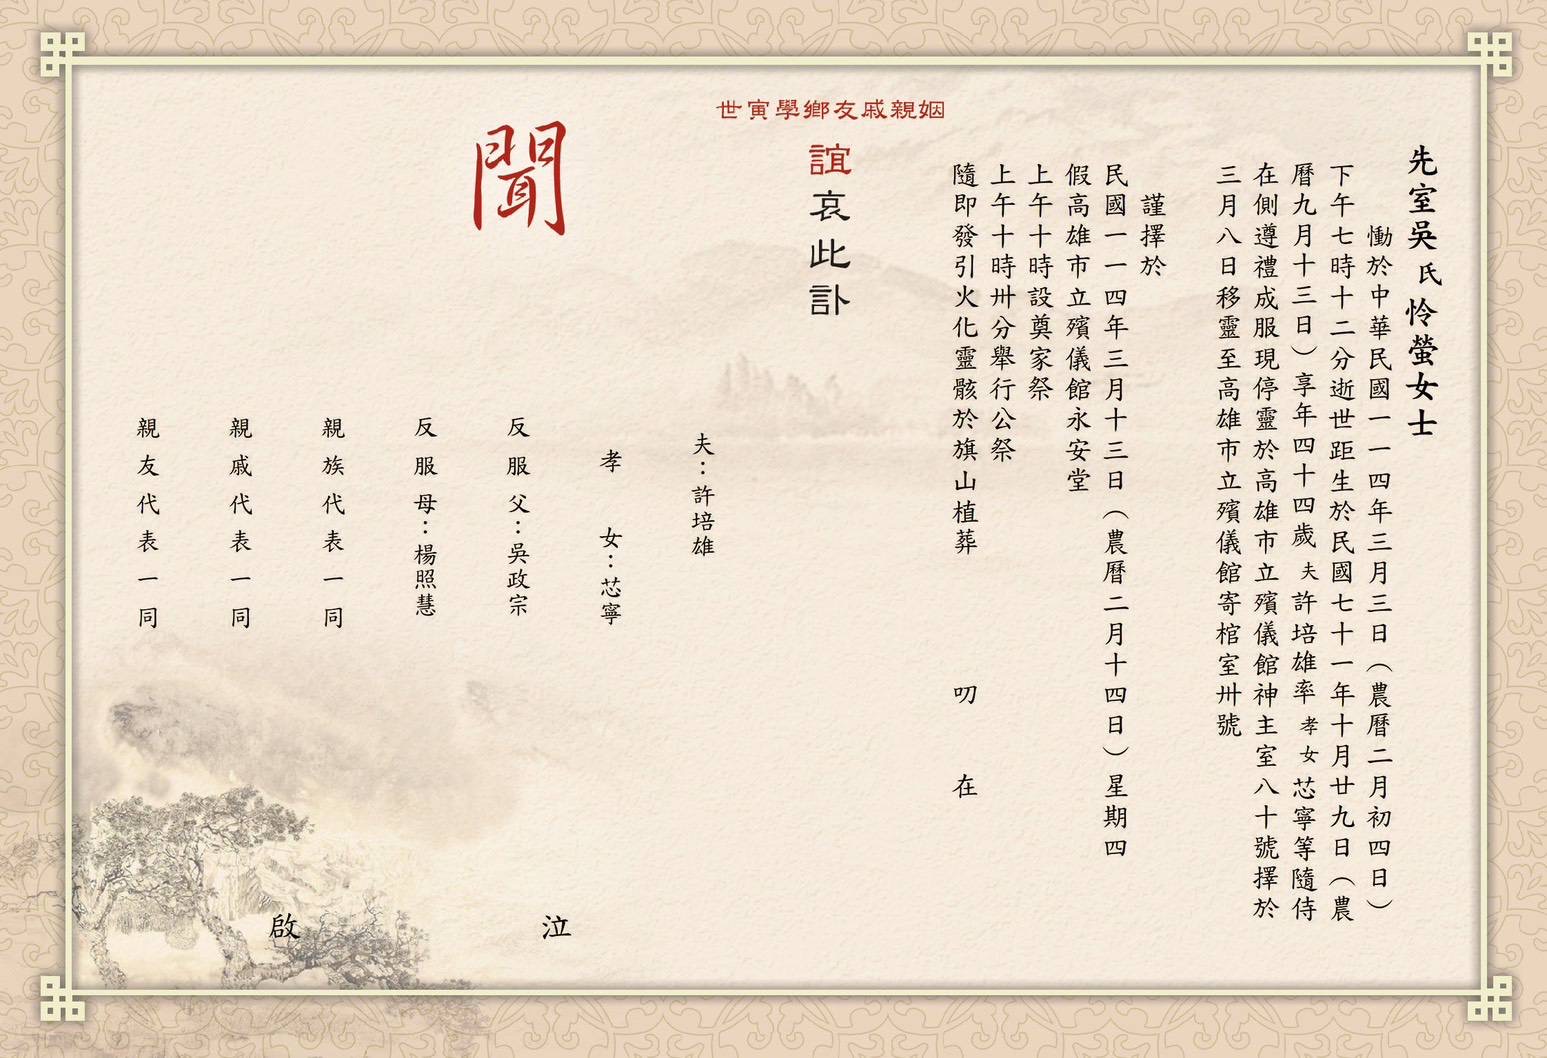 先室吳氏怜螢女士
慟於中華民國一一四年三月三日（農曆二月初四日）
下午七時十二分逝世距生於民國七十一年十月廿九日（農
曆九月十三日）享年四十四歲夫許培雄率孝女芯寧等隨侍
在側遵禮成服現停靈於高雄市立殯儀館神主室八十號擇於
三月八日移靈至高雄市立殯儀館寄棺室卅號
謹擇於
民國一一四年三月十三日（農曆二月十四日）星期四
假高雄市立殯儀館永安堂
上午十時設奠家祭
上午十時卅分舉行公祭
隨即發引火化靈骸於旗山植葬　叨　在
姻親戚友鄉學寅世
誼哀此訃
聞
夫：許培雄
孝　女：芯寧
反服父：吳政宗
反服母：楊照慧
親族代表一同
親戚代表一同
親友代表一同
泣　啟